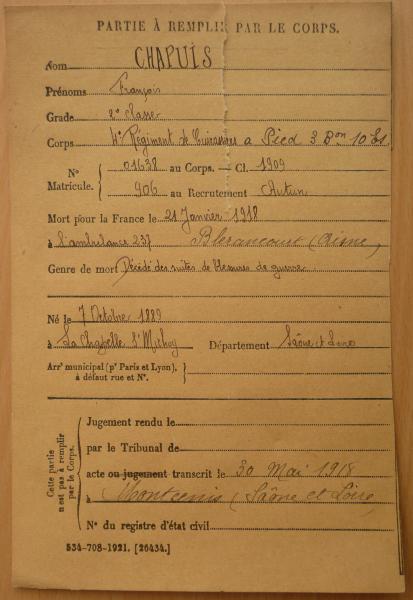 PARTIE À REMPLIR PAR LE CORPS.
Nom CHAPUIS
Prénoms François
Grade 2e classe
Corps 4e Régiment de Cuirassiers à Pied 3 Bon 10 Et
No Matricule. { 01638 au Corps. — Cl. 1909
906 au Recrutement Autun
Mort pour la France le 21 Janvier 1918
à l'ambulance 237 Blérancourt (Aisne)
Genre de mort Décédé des suites de blessures de guerre
Né le 7 Octobre 1889
à La Chapelle St Mithoy Département Saône et Loire
Arrt municipal (pr Paris et Lyon), à défaut rue et No. }
Cette partie n'est pas à remplir par le Corps.
Jugement rendu le
par le Tribunal de
acte ou jugement transcrit le 30 Mai 1918
à Montcenis (Saône et Loire)
No du registre d'état civil
534-708-1921. [26434.]